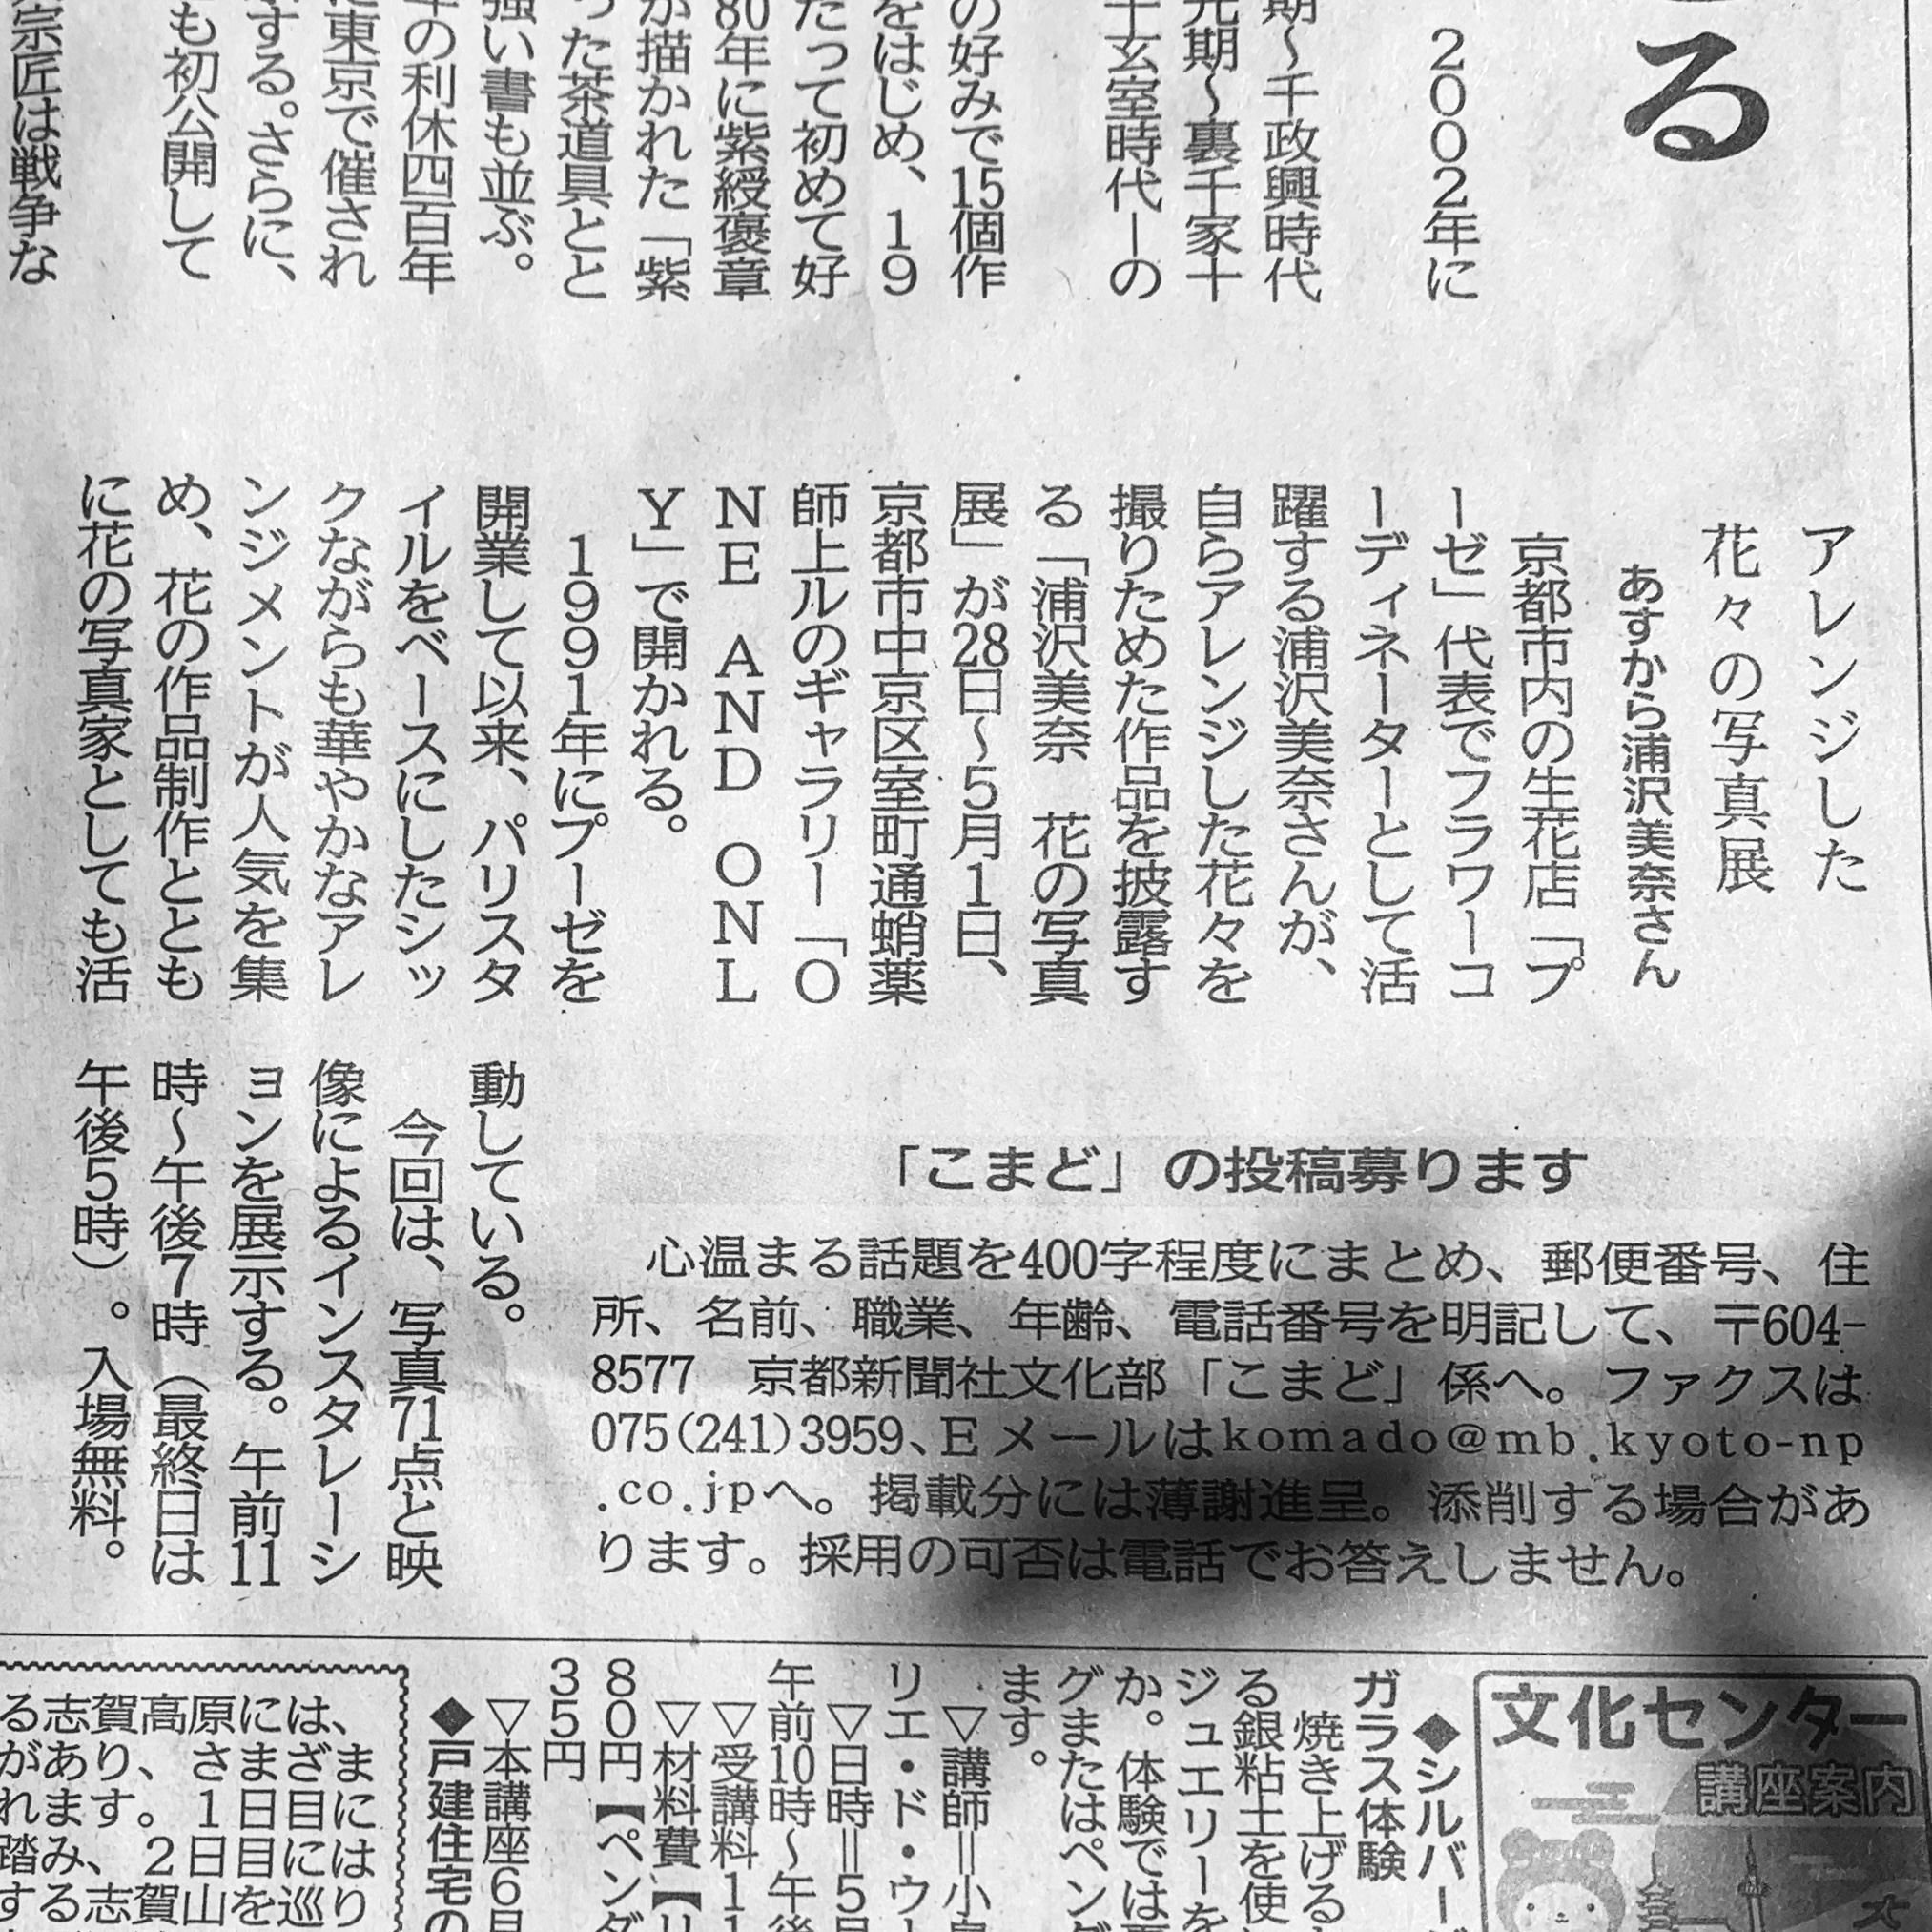 る
２００２年に
期〜千政興時代
元期〜裏千家十
千玄室時代ーの
の好みで15個作
をはじめ、１９
たって初めて好
80年に紫綬褒章
が描かれた「紫
った茶道具とと
強い書も並ぶ。
年の利休四百年
に東京で催され
する。さらに、
も初公開して
宗匠は戦争な
アレンジした
花々の写真展
あすから浦沢美奈さん
京都市内の生花店「プ
ーゼ」代表でフラワーコ
ーディネーターとして活
躍する浦沢美奈さんが、
自らアレンジした花々を
撮りためた作品を披露す
る「浦沢美奈　花の写真
展」が28日〜５月１日、
京都市中京区室町通蛸薬
師上ルのギャラリー「Ｏ
ＮＥ　ＡＮＤ　ＯＮＬ
Ｙ」で開かれる。
１９９１年にプーゼを
開業して以来、パリスタ
イルをベースにしたシッ
クながらも華やかなアレ
ンジメントが人気を集
め、花の作品制作ととも
に花の写真家としても活
動している。
今回は、写真71点と映
像によるインスタレーシ
ョンを展示する。午前11
時〜午後７時（最終日は
午後５時）。入場無料。
「こまど」の投稿募ります
心温まる話題を400字程度にまとめ、郵便番号、住
所、名前、職業、年齢、電話番号を明記して、〒604-
8577　京都新聞社文化部「こまど」係へ。ファクスは
075(241)3959、Ｅメールはkomado@mb.kyoto-np
.co.jpへ。掲載分には薄謝進呈。添削する場合があ
ります。採用の可否は電話でお答えしません。
文化センター
講座案内
◆シルバー
ガラス体験
焼き上げる
る銀粘土を使
ジュエリーを
か。体験では
グまたはペン
ます。
▽講師＝小
リエ・ド・ウ
▽日時＝５月
午前10時〜午後
▽受講料１１
▽材料費【リ
８０円【ペンダ
３５円
▽本講座６月
◆戸建住宅の
る志賀高原には、
があり、さまざま
れます。１日目に
踏み、２日目には
する志賀山を巡り